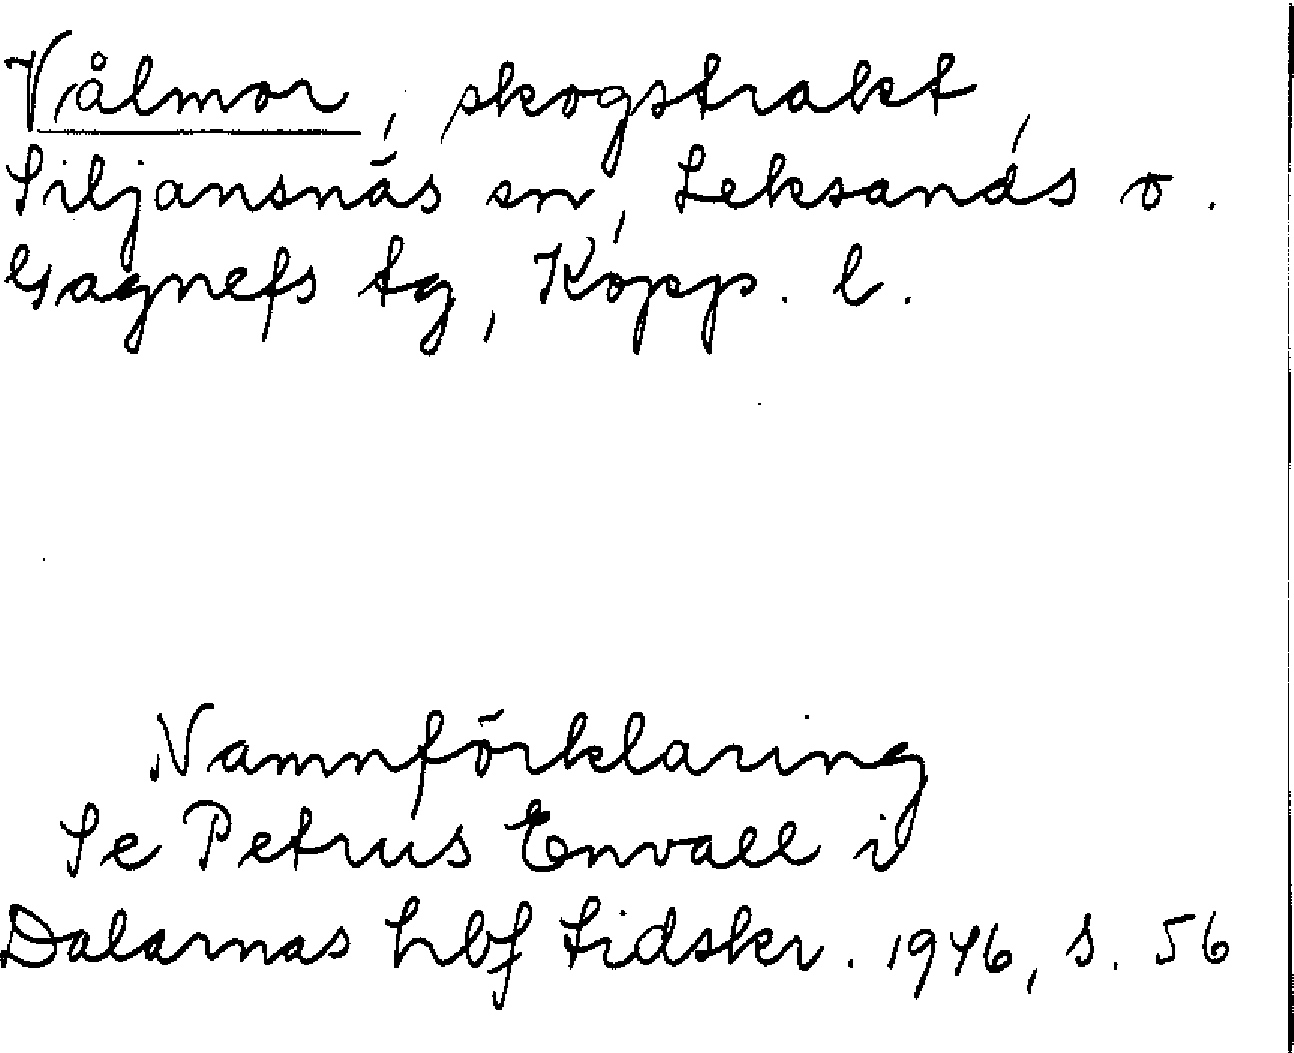 Vålmor, skogstrakt,
Siljansnäs sn, Leksands o.
Gagnefs tg, Kopp. l.
Namnförklaring
Se Petrus Envall i
Dalarnas hbf tidskr. 1946, s. 56